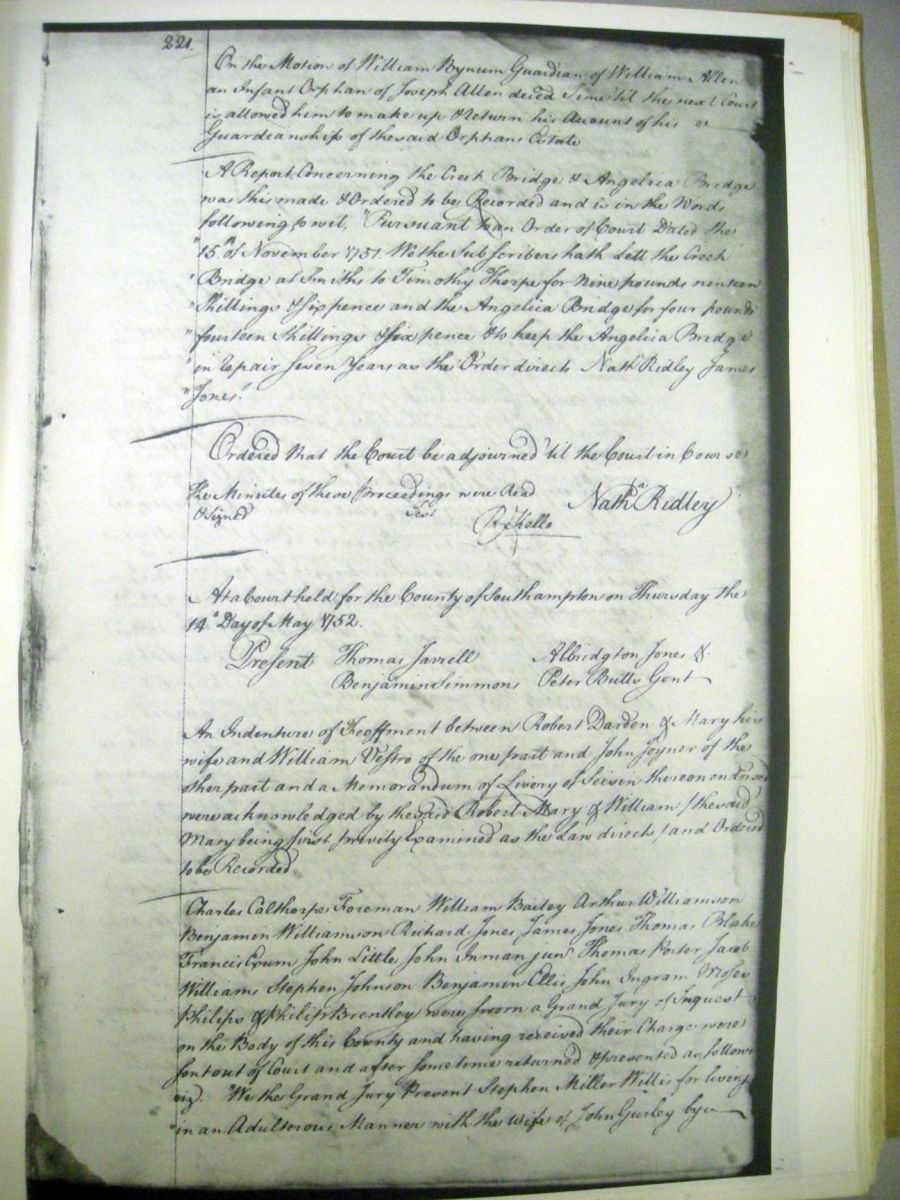 221.
On the Motion of William Bynum Guardian of William Allen
an Infant Orphan of Joseph Allen deced time 'til the next Court
is allowed him to make up & Return his Account of his
Guardianship of the said Orphans Estate
A Report Concerning the Creek Bridge & Angelica Bridge
was this made & Ordered to be Recorded and is in the Words
following to wit, "Pursuant to an Order of Court Dated the
"15.th of November 1751. We the Subscribers hath Lett the Creek
Bridge at Smiths to Timothy Thorpe for Nine pounds nineteen
"Shillings & sixpence and the Angelica Bridge for four pounds
"fourteen Shillings & six pence & to keep the Angelica Bridge
"in repair Seven Years as the Order directs Nath Ridley James
"Jones."
Ordered that the Court be adjourned 'til the Court in Course
The Minutes of these Proceedings were Read
& Signed
Test
Nath.a Ridley
R Kello
At a Court held for the County of Southampton on Thursday the
14th Day of May 1752.
Present Thomas Jarrell Albridgton Jones &
Benjamin Simmons Peter Butts Gent
An Indenture of Feoffment between Robert Darden & Mary his
wife and William Vestro of the one part and John Joyner of the
other part and a Memorandum of Livery of Seisen thereon endorsed
were acknowledged by the said Robert Mary & William / the said
Mary being first privily Examined as the Law directs / and Ordered
to be Recorded
Charles Calthorpe Foreman William Bailey Arthur Williamson
Benjamin Williamson Richard Jones James Jones Thomas Blake
Francis Exum John Little John Inman junr Thomas Porter Jacob
Williams Stephen Johnson Benjamin Ellis John Ingram Moses
Philips & Philip Brentley were sworn a Grand Jury of Inquest
on the Body of this County and having received their Charge were
sent out of Court and after sometime returned & presented as follows
viz. "We the Grand Jury Present Stephen Miller Willis for living
"in an Adulterous Manner with the Wife of John Gurley by